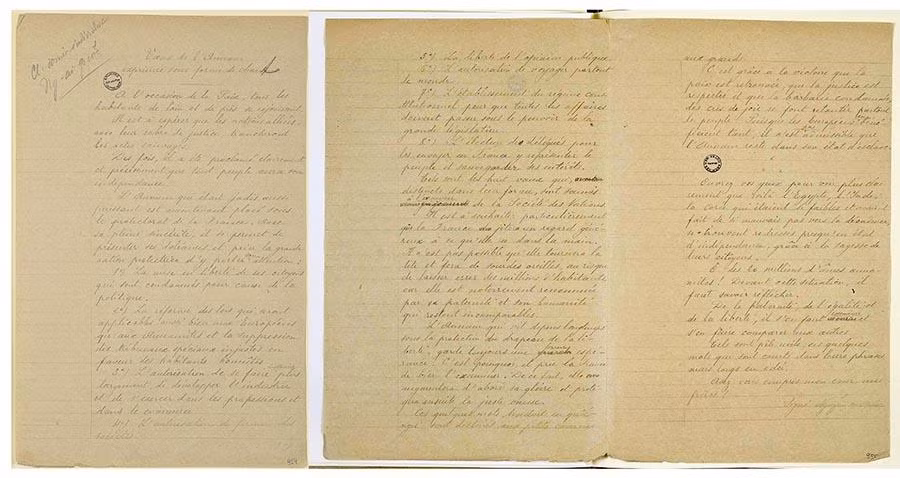 Vœux de l'Annam
exprimés sous forme de chant
A l'occasion de la Paix, tous les
habitants de loin et de près se réjouissent.
Il est à espérer que les nations alliées,
avec leur sabre de justice, trancheront
les actes sauvages.
Des fois, il a été proclamé clairement
et précisément que tout peuple aurait son
indépendance.
L'Annam qui était jadis aussi
puissant est maintenant placé sous
le protectorat de la France. Avec
sa pleine sincérité, il se permet de
présenter ses doléances et prie la grande
nation protectrice d'y porter attention :
1º) La mise en liberté de ses citoyens
qui sont condamnés pour cause de la
politique.
2º) La réforme des lois qui soient
applicables aussi bien aux Européens
qu'aux Annamites et la suppression
des tribunaux spéciaux injustes en
faveur des habitants honnêtes.
3º) L'autorisation de se faire plus
largement de développer l'industrie
et de s'exercer dans les professions et
dans le commerce.
4º) L'autorisation de former des
sociétés.
954
5º) La liberté de l'opinion publique.
6º) L'autorisation de voyager partout
le monde.
7º) L'établissement du régime cons-
titutionnel pour que toutes les affaires
doivent passer sous le pouvoir de la
grande législation.
8º) L'élection des délégués pour
les envoyer en France y représenter le
peuple et sauvegarder ses intérêts.
Tels sont les huit vœux qui,
distincts dans leur forme, sont soumis
de la Société des Nations.
Il est à souhaiter particulièrement
que la France jettera un regard géné-
reux à ce qu'elle a dans la main.
Il n'est pas possible qu'elle tournera la
tête et fera de sourdes oreilles, au risque
de laisser errer des millions d'habitants
car elle est notoirement renommée
par sa paternité et son humanité
qui restent incomparables.
L'Annam qui vit depuis longtemps
sous la protection du drapeau de la li-
berté, garde toujours une espé-
rance. C'est pourquoi il prie la France
de bien l'examiner. De ce fait, elle
augmentera d'abord sa gloire et proté-
gera ensuite la juste cause.
Ces quelques mots traduits en
sont destinés aux petits comme
aux grands.
C'est grâce à la victoire que la
paix est retrouvée, que la justice est
respectée et que la barbarie condamnée,
des cris de joie se font retentir partout
le peuple. Puisque les Européens
tant, il n'est admissible que
l'Annam reste dans son état d'esclave.
Ouvrez vos yeux pour voir plus clai-
rement que voilà l'Egypte, l'Inde,
la Corée qui étaient si faibles et ont
fait de si mauvais pas vers la décadence,
se trouvent redressés presque en état
d'indépendance, grâce à la sagesse de
leurs citoyens.
Et les 20 millions d'âmes anna-
mites ! Devant cette situation, il
faut savoir réfléchir.
De la fraternité, de l'égalité et
de la liberté, il s'en faut
s'en faire comparer aux autres.
Tels sont petits ces quelques
mots qui sont courts dans leurs phrases
mais longs en idée.
avez-vous compris mon cœur, mes
frères ?
Signé
955